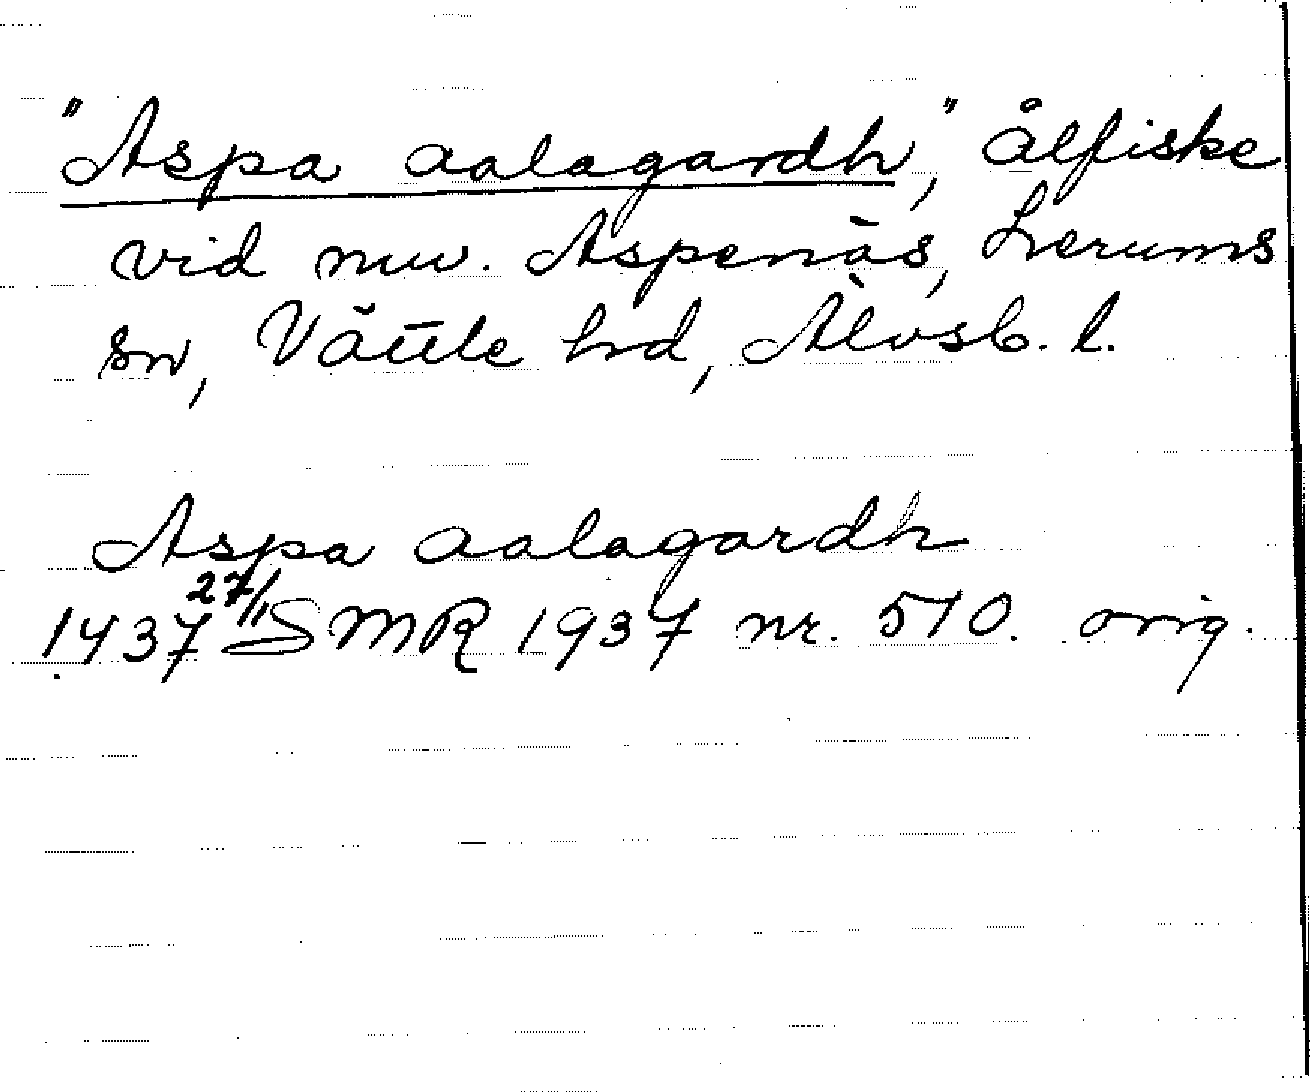 "Aspa aalagardh", ålfiske
vid nuv. Aspenäs, Lerums
sn, Vättle hd, Älvsb. l.
Aspa aalagardh
1437 27/11 SMR 1937 nr. 510. orig.